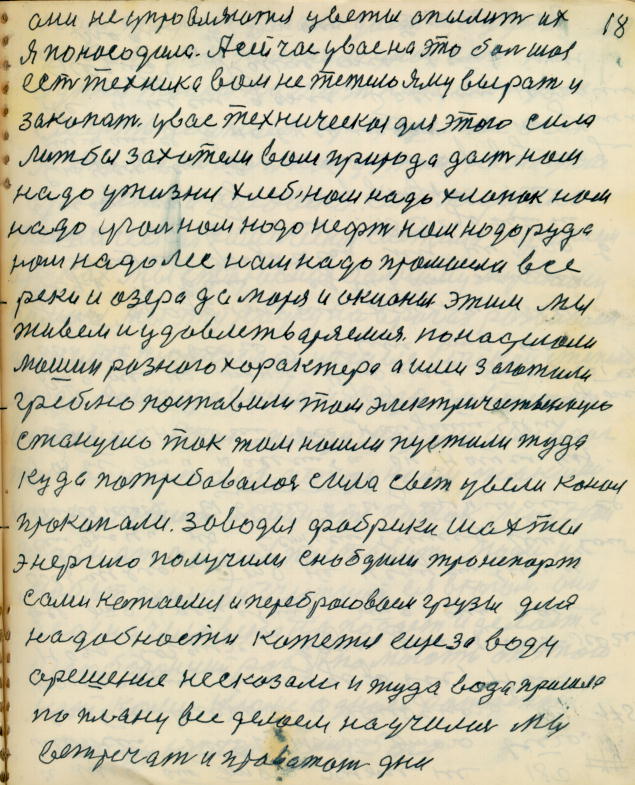 они не управляются цветы опылит их 18
я понасодила. А сейчас увас на это большая
есть техника вам не тежело яму вырат и
закопат. увас техническоя для этого сила
лиш бы захотели вам природа даст нам
надо ужизни хлеб, нам надо хлопок нам
надо угол нам надо нефт нам надо руда
нам надо лес нам надо промысла все
реки и озера да моря и окионы этим мы
живем и удовлетваряемся. понаделали
машин разного характера а или заготили
греблю поставили там электричественную
станцию ток там нашли пустили туда
куда потребавалоя сила свет увели канал
прокопали. Заводы фабрики шахты
энергию получили снобдили транспорт
сами катаемся и перебрасоваем грузы для
надобности кажется еще за воду
орешение несказали и туда вода пришла
по плану все делаем научился мы
встречат и проважат дни